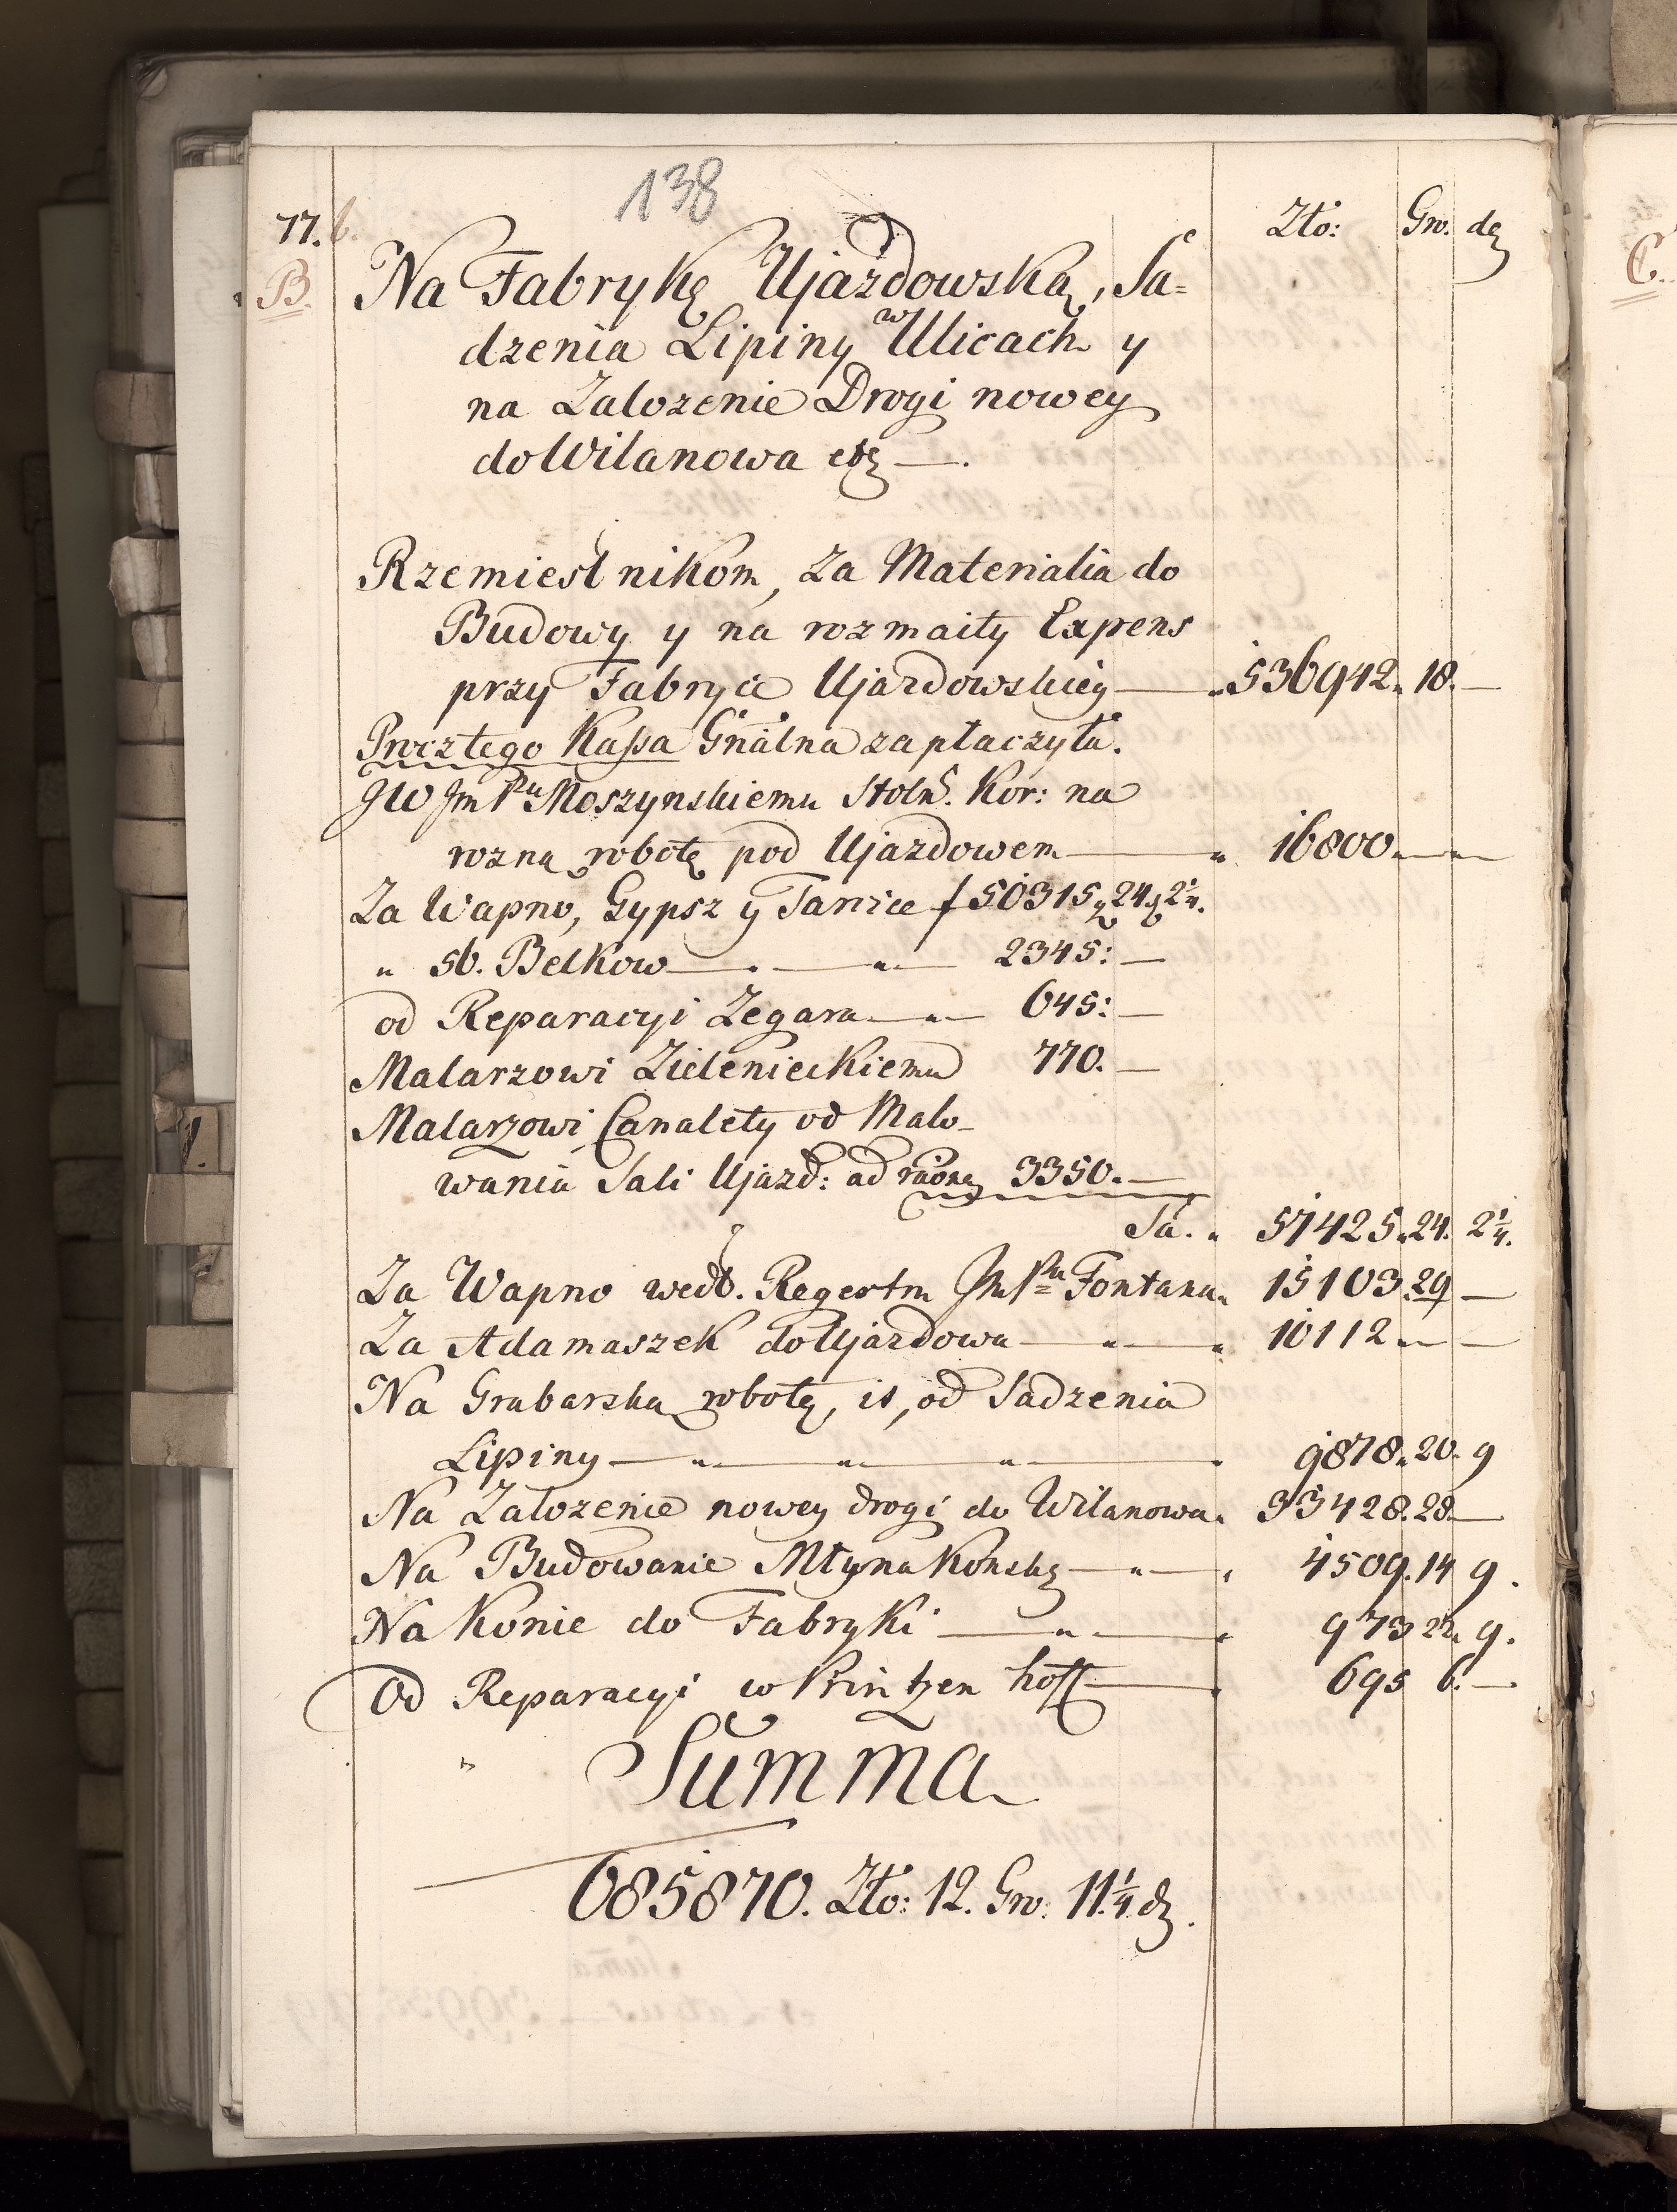 138
77.6. Zło: Gro. de
B. Na Fabrykę Ujazdowską, Sa=
dzenia Lipiny w Ulicach y
na Zalozenie Drogi nowey
do Wilanowa etc —.
Rzemieslnikom, za Materialia do
Budowy y na rozmaity Expens
przy Fabryce Ujazdowskiey — 536942. 18. —
Prócztego Kassa Gnalna zapłaczyła.
JW Jm Pu Moszynskiemu Stoln. Kor: na
rozną robotę pod Ujazdowem — 16800. —
Za Wapno, Gypsz y Tarcice f 50315, 24, 2¼.
" 56. Belkow — " — 2345: —
od Reparacyi Zegara — " — 645: —
Malarzowi Zielenieckiemu 770. —
Malarzowi Canalety od Malo-
wania Sali Ujazd: ad raōnę 3350. —
Fa. " 57425. 24. 2¼.
Za Wapno wedł. Regestru Jm Pu Fontana " 15103. 29 —
Za Adamaszek do Ujazdowa — " — " 10112 " — —
Na Grabarska robotę, is, od Sadzenia
Lipiny — " — " — " — 9878. 20. 9
Na Zalozenie nowey drogi do Wilanowa. 33428. 28. —
Na Budowanie Młyna Konskę — " — 4509. 14 9.
Na Konie do Fabryki — " — 973 22. 9.
Od Reparacyi w Printzen hoff — 695 6. —
Summa
685870. Zło: 12. Gro. 11¼ d.